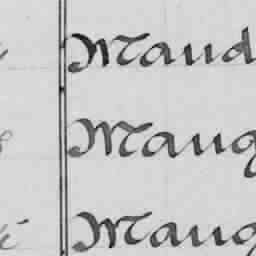 Maud
Maug
Maug